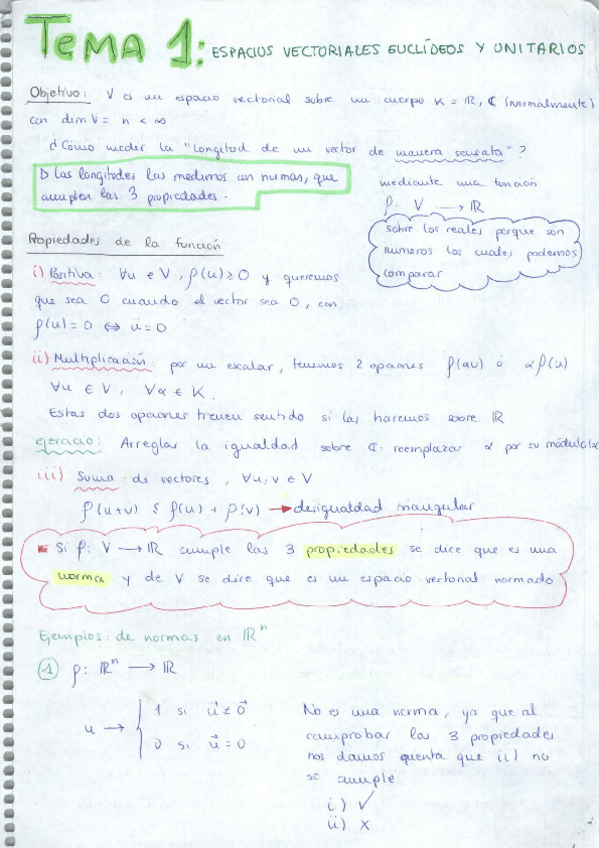 TEMA 1: ESPACIOS VECTORIALES EUCLÍDEOS Y UNITARIOS
Objetivo: V es un espacio vectorial sobre un cuerpo K = ℝ, ℂ (normalmente)
con dim V = n < ∞
¿Cómo medir la "longitud de un vector de manera sensata"?
▷ Las longitudes las medimos con normas, que
cumplen las 3 propiedades.
mediante una función
ρ: V → ℝ
sobre los reales porque son
números los cuales podemos
comparar
Propiedades de la función
i) Positiva: ∀u ∈ V, ρ(u) ≥ 0 y queremos
que sea 0 cuando el vector sea 0, con
ρ(u) = 0 ⇔ u = 0
ii) Multiplicación: por un escalar, tenemos 2 opciones ρ(αu) ó αρ(u)
∀u ∈ V, ∀α ∈ K.
Estas dos opciones tienen sentido si las hacemos sobre ℝ
ejercicio: Arreglar la igualdad sobre ℂ: reemplazar α por su módulo|α
iii) Suma: de vectores, ∀u, v ∈ V
ρ(u+v) ≤ ρ(u) + ρ(v) → desigualdad triangular
Si ρ: V → ℝ cumple las 3 propiedades se dice que es una
norma y de V se dice que es un espacio vectorial normado
Ejemplos: de normas en ℝⁿ
① ρ: ℝⁿ → ℝ
u → { 1 si u⃗ ≠ 0⃗
0 si u⃗ = 0
No es una norma, ya que al
comprobar las 3 propiedades
nos damos cuenta que ii) no
se cumple
i) ✓
ii) x